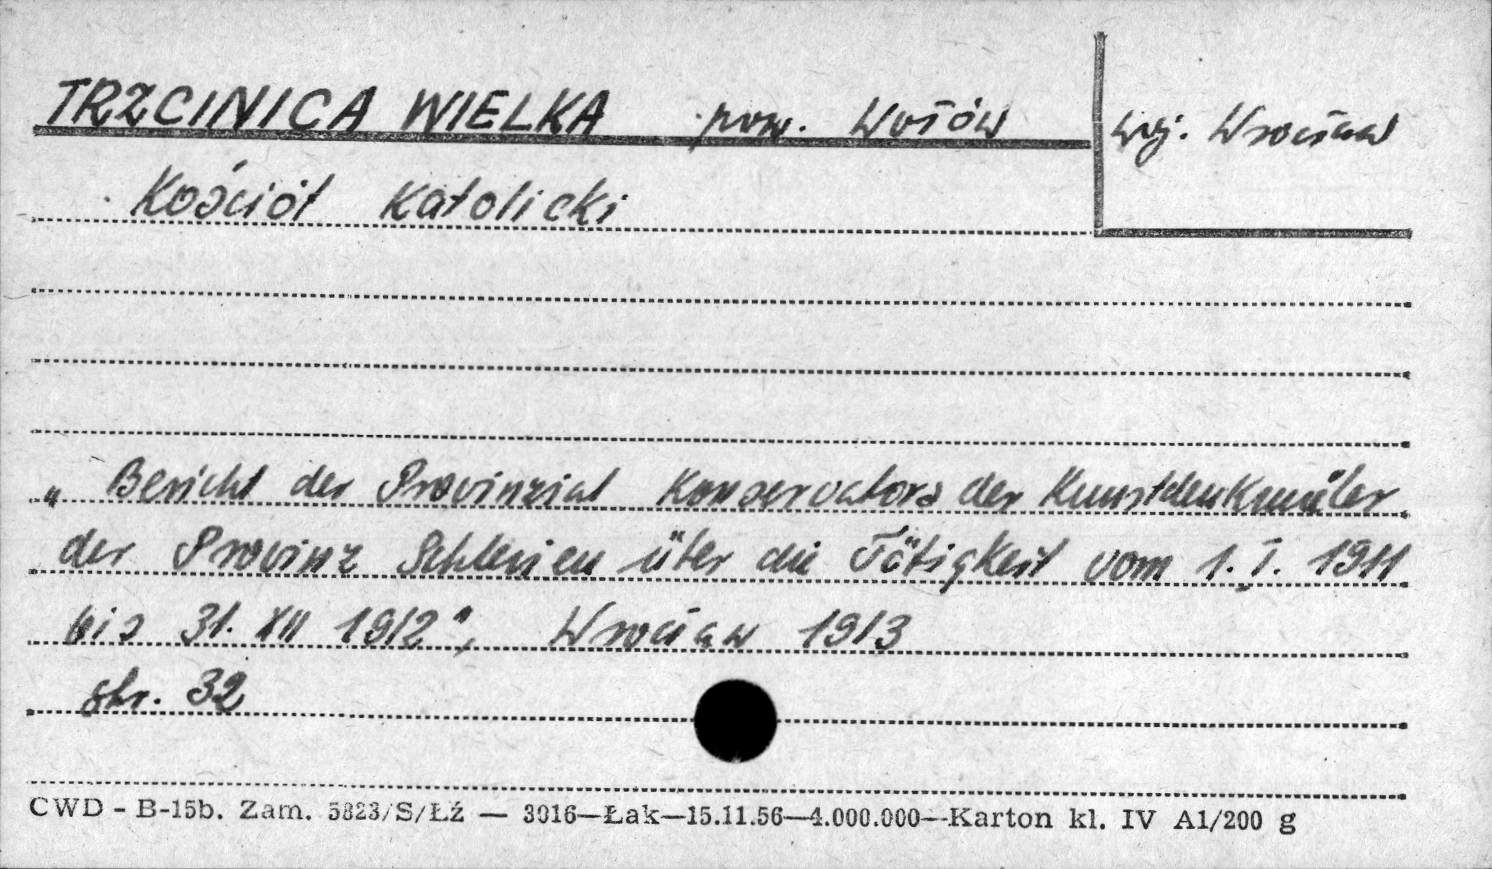 TRZCINICA WIELKA pow. Wołów
woj. Wrocław
Kościół Katolicki
„Bericht der Provinzial Konservators der Kunstdenkmäler
der Provinz Schlesien über die Tätigkeit vom 1.I. 1911
bis 31. XII 1912", Wrocław 1913
str. 32
CWD - B-15b. Zam. 5823/S/Łź — 3016—Łak—15.11.56—4.000.000—Karton kl. IV A1/200 g